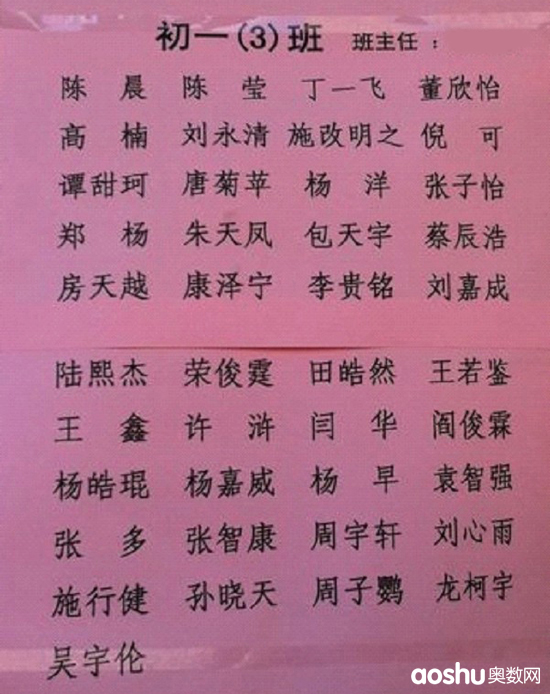 初一(3)班 班主任：
陈晨 陈莹 丁一飞 董欣怡
高楠 刘永清 施改明之 倪可
谭甜珂 唐菊苹 杨洋 张子怡
郑杨 朱天凤 包天宇 蔡辰浩
房天越 康泽宁 李贵铭 刘嘉成
陆熙杰 荣俊霆 田皓然 王若鉴
王鑫 许浒 闫华 阎俊霖
杨皓琨 杨嘉威 杨早 袁智强
张多 张智康 周宇轩 刘心雨
施行健 孙晓天 周子鹦 龙柯宇
吴宇伦
aoshu奥数网